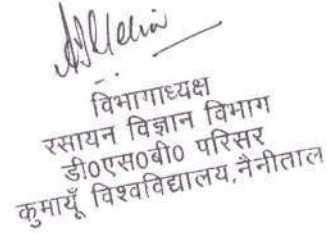 विभागाध्यक्ष
रसायन विज्ञान विभाग
डी०एस०बी० परिसर
कुमायूँ विश्वविद्यालय, नैनीताल